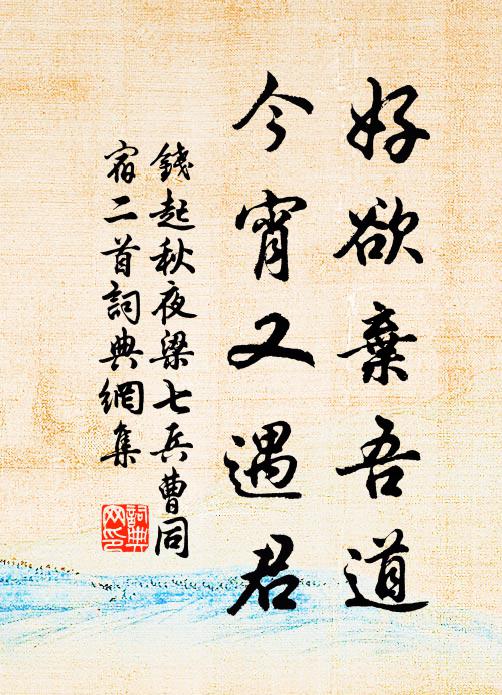 好欲棄吾道
今宵又遇君
錢起秋夜梁七兵曹同
宿二首詞典網集
詞典
网印